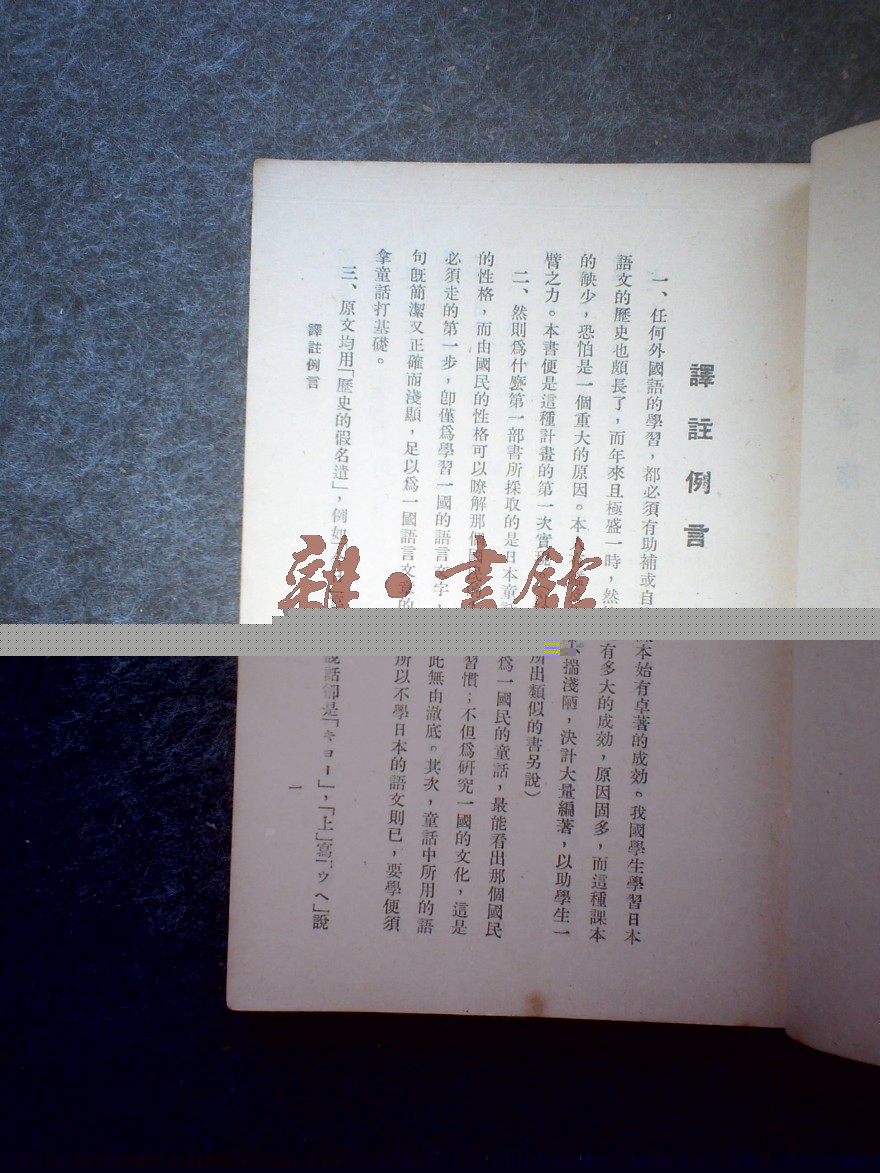 譯註例言
一、任何外國語的學習，都必須有助補或自
本始有卓著的成効。我國學生學習日本
語文的歷史也頗長了，而年來且極盛一時，然
有多大的成効，原因固多，而這種課本
的缺少，恐怕是一個重大的原因。本
揣淺陋，決計大量編著，以助學生一
臂之力。本書便是這種計畫的第一次實現
所出類似的書另說）
二、然則爲什麼第一部書所採取的是日本童話
爲一國民的童話，最能看出那個國民
的性格，而由國民的性格可以瞭解那個國民
習慣；不但爲研究一國的文化，這是
必須走的第一步，卽僅爲學習一國的語言文字，
此無由澈底。其次，童話中所用的語
句旣簡潔又正確而淺顯，足以爲一國語言文章的
所以不學日本的語文則已，要學便須
拿童話打基礎。
三、原文均用「歷史的假名遣」，例如
說話卻是「キヨー」，「上」寫「ウヘ」說
譯註例言
一
雜·書館